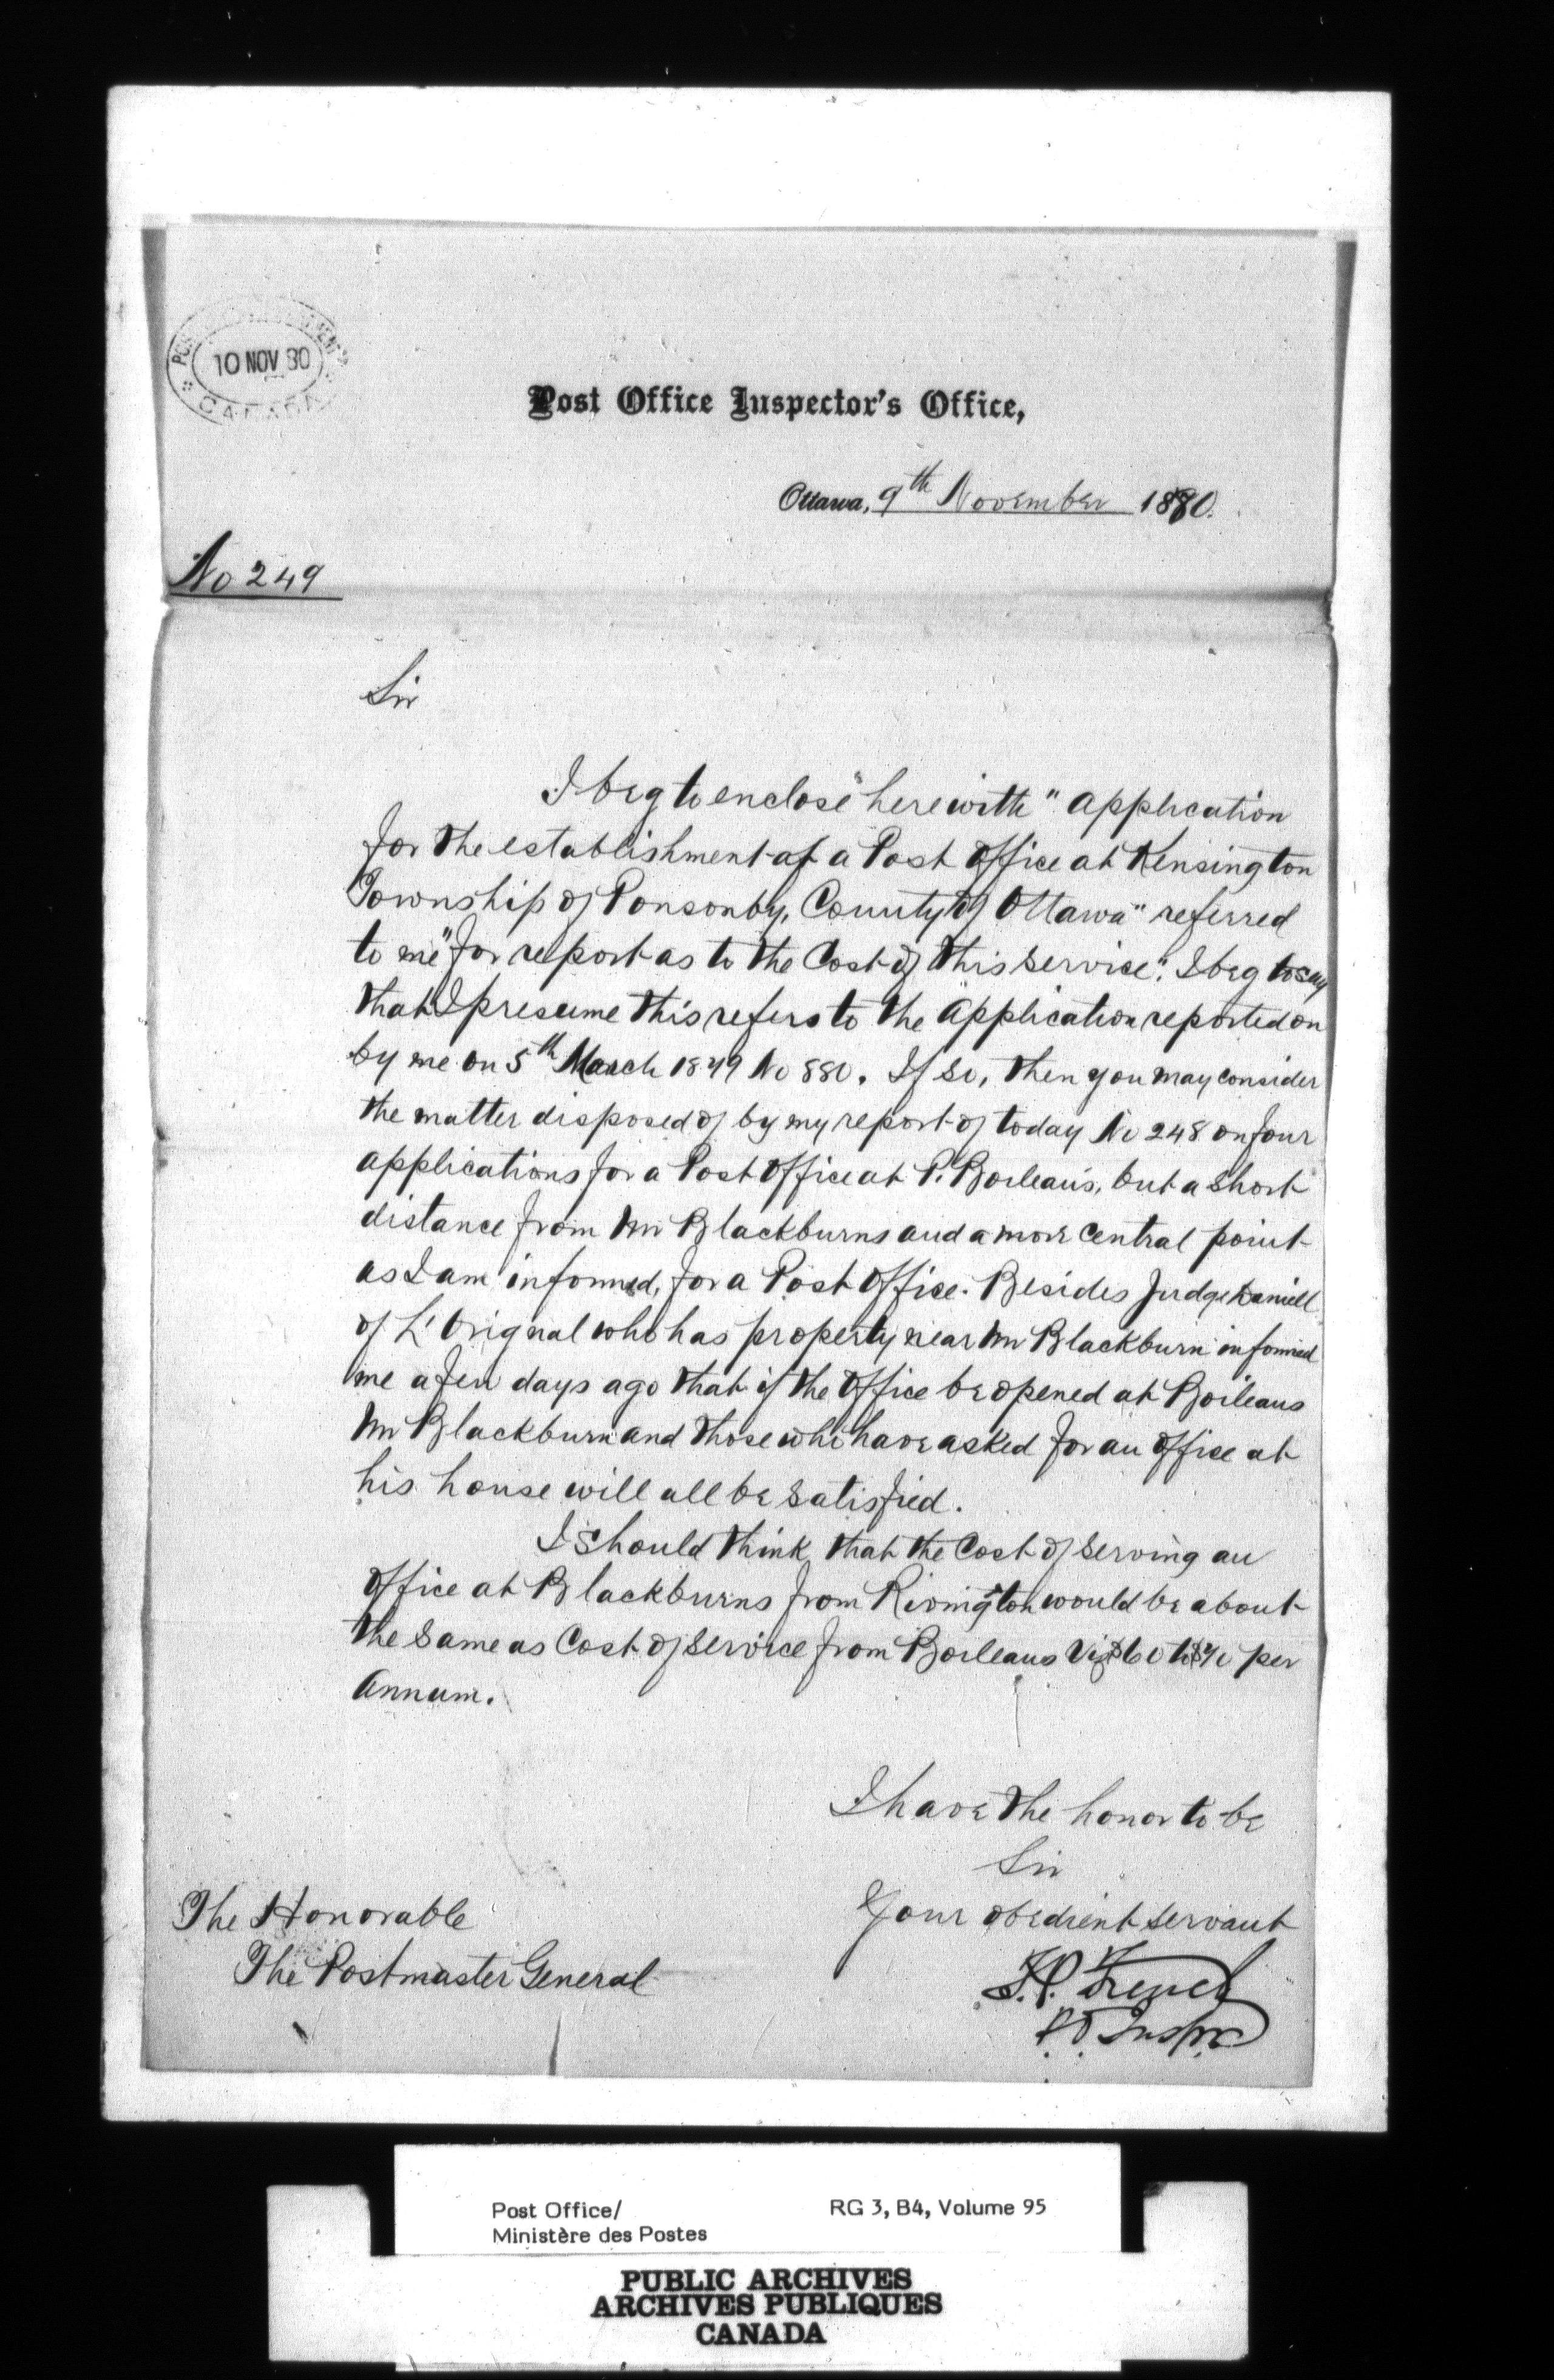 10 NOV 80
CANADA
Post Office Inspector's Office,
Ottawa, 9th November 1880.
No 249
Sir
I beg to enclose "herewith" application
for the establishment of a Post Office at Kensington
Township of Ponsonby, County of Ottawa" referred
to me "for report as to the Cost of this service". I beg to say
that I presume this refers to the application reported on
by me on 5th March 1879 No 880. If so, then you may consider
the matter disposed of by my report of today No 248 on four
applications for a Post Office at P. Boileau's, but a short
distance from Mr Blackburns and a more central point
as I am informed, for a Post Office. Besides Judge Daniell
of L'Orignal who has property near Mr Blackburn informed
me a few days ago that if the Office be opened at Boileaus
Mr Blackburn and those who have asked for an office at
his house will all be satisfied.
I should think that the Cost of serving an
Office at Blackburns from Rivington would be about
the same as Cost of service from Boileaus Viz $60 to $70 per
Annum.
I have the honor to be
Sir
Your obedient servant
The Honorable
The Postmaster General
French
P.O Inspr
Post Office/
Ministère des Postes
RG 3, B4, Volume 95
PUBLIC ARCHIVES
ARCHIVES PUBLIQUES
CANADA